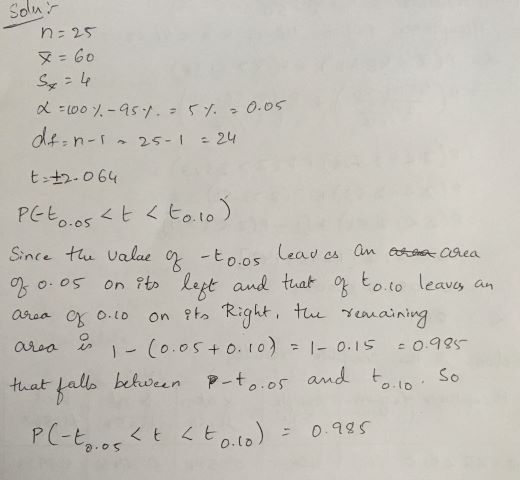 Soln:-
n = 25
x̄ = 60
Sx = 4
α = 100% - 95% = 5% = 0.05
df = n - 1 = 25 - 1 = 24
t = ±2.064
P(-t0.05 < t < t0.10)
Since the value of -t0.05 leaves an area
of 0.05 on its left and that of t0.10 leaves an
area of 0.10 on its Right, the remaining
area is 1 - (0.05 + 0.10) = 1 - 0.15 = 0.985
that falls between -t0.05 and t0.10. So
P(-t0.05 < t < t0.10) = 0.985